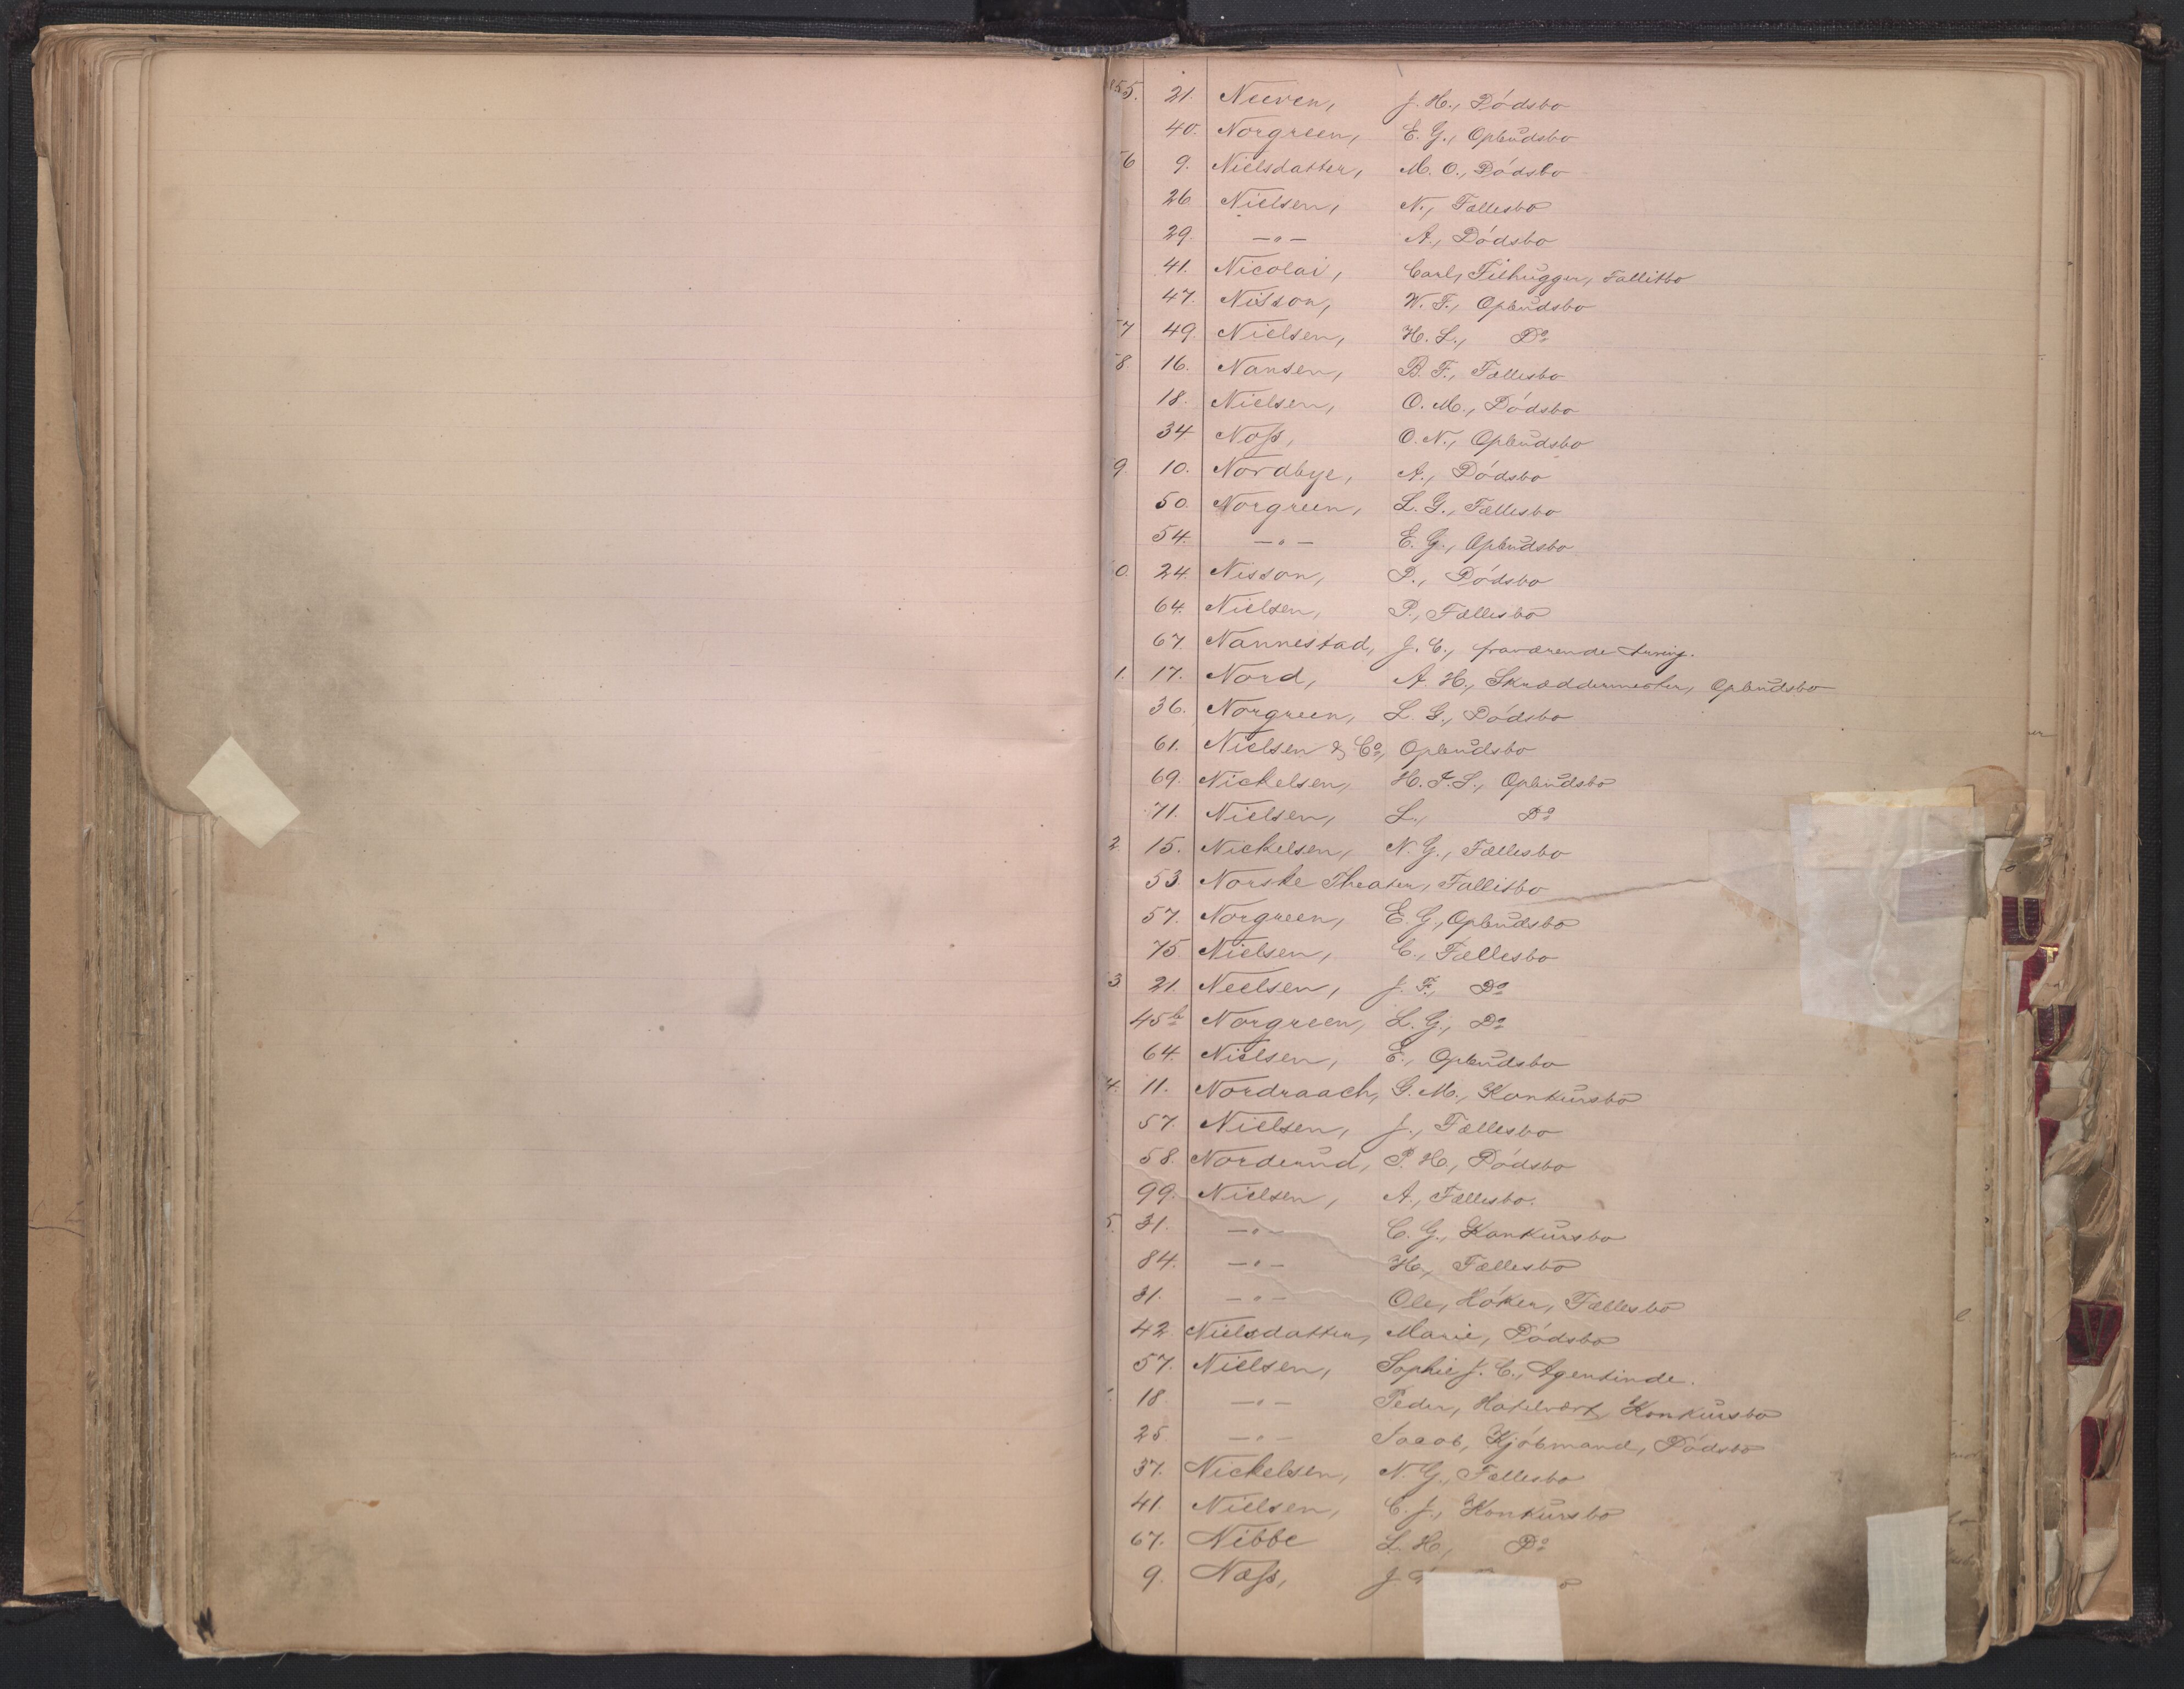 155. 21. Neeven, J. H., Dödsbo
40. Norgreen, E. G., Opbudsbo
56 9. Nielsdatter, M. O., Dödsbo
26 Nielsen, N., Fællesbo
29. —„— A., Dödsbo
41. Nicolai, Carl, Filhugger, Fallitbo
47. Nisson, W. F., Opbudsbo
57 49. Nielsen, H. L., Do
58 16. Nansen, B. F., Fællesbo
18. Nielsen, O. M., Dödsbo
34 Noss, O. N., Opbudsbo
9. 10. Nordbye, A., Dödsbo
50. Norgreen, L. G., Fællesbo
54. —„— E. G., Opbudsbo
0. 24. Nisson, P., Dödsbo
64. Nielsen, P., Fællesbo
67. Nannestad, J. C., fraværende
1. 17. Nord, A. H., Skræddermester, Opbudsbo
36. Norgreen, L. G., Dödsbo
61. Nielsen & Co, Opbudsbo
69. Nickelsen, H. F. L., Opbudsbo
71. Nielsen, L., Do
2 15. Nickelsen, N. G., Fællesbo
53. Norske Theater, Fallitbo
57. Norgreen, E. G., Opbudsbo
75 Nielsen, C., Fællesbo
3 21. Neelsen, J. F., Do
45b Norgreen, L. G., Do
64. Nielsen, E., Opbudsbo
4. 11. Nordraach, G. M., Konkursbo
57. Nielsen, J., Fællesbo
58. Norderud, P. H., Dödsbo
99. Nielsen, A., Fællesbo.
5. 31. —„— C. G., Konkursbo
84. —„— H., Fællesbo
31. —„— Ole, Höker, Fællesbo
42. Nielsdatter, Marie, Dödsbo
57. Nielsen, Sophie J. C., Agentinde.
18. —„— Peder, Hotelvært, Konkursbo
25 —„— Jacob, Kjöbmand, Dödsbo
37. Nickelsen, N. G., Fællesbo
41. Nielsen, C. J., Konkursbo
67. Nibbe L. H., Do
9. Næss, J.